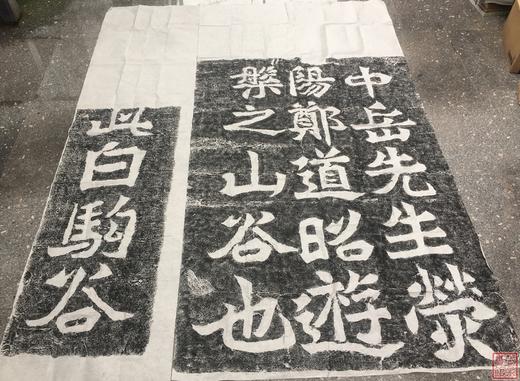 中岳先生荥
陽鄭道昭遊
槃之山谷也
此白駒谷